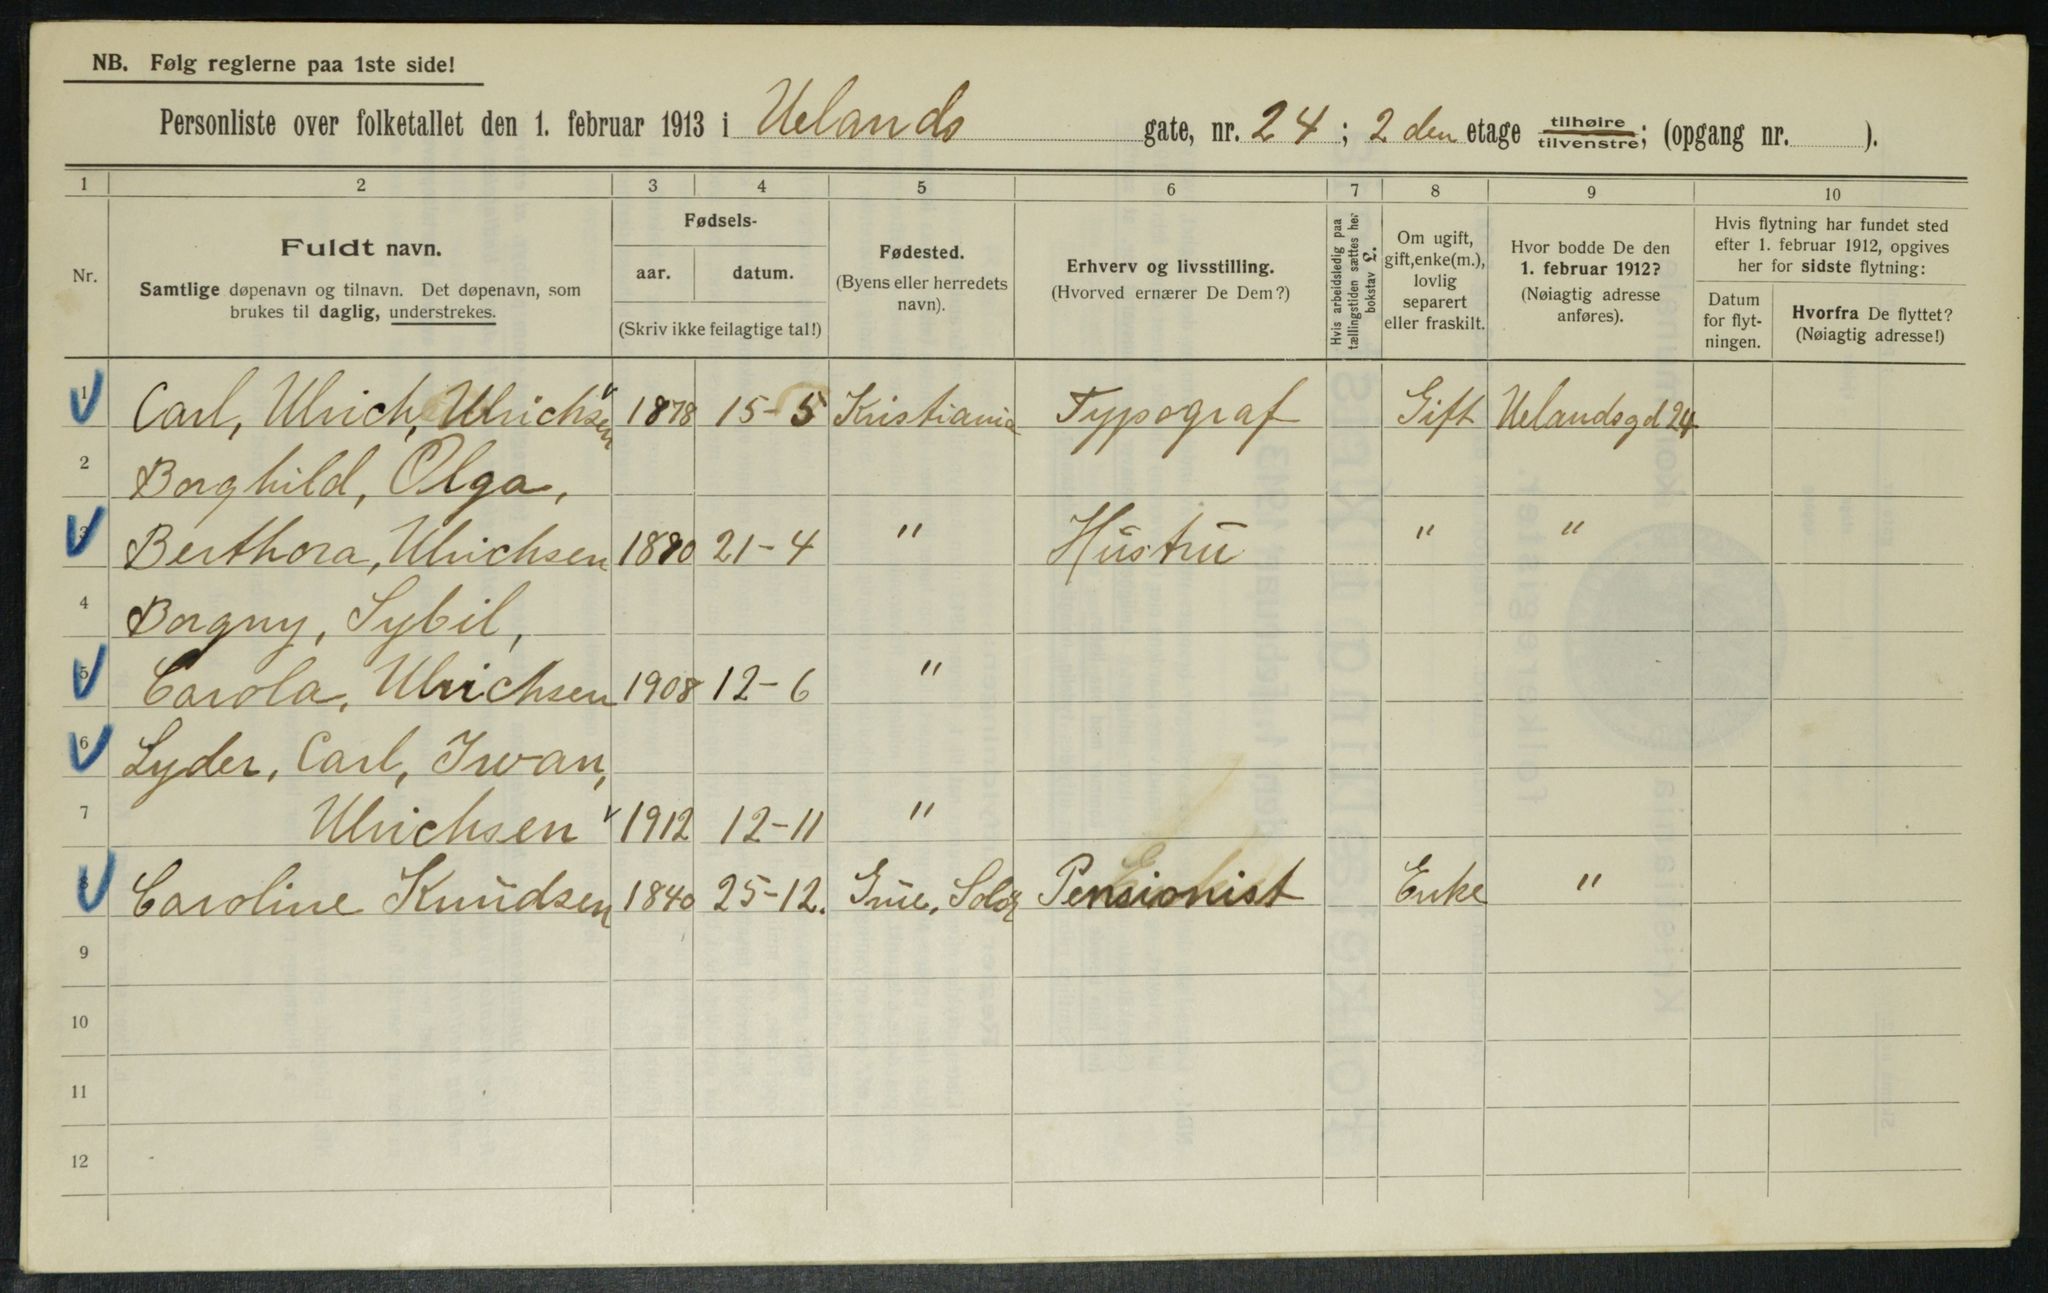 NB. Følg reglerne paa 1ste side!
Personliste over folketallet den 1. februar 1913 i Uelands gate, nr. 24; 2 den etage tilhøire tilvenstre; (opgang nr. ).
1 2 3 4 5 6 7 8 9 10
Nr.
Fuldt navn.
Samtlige døpenavn og tilnavn. Det døpenavn, som
brukes til daglig, understrekes.
Fødsels-
aar. datum.
(Skriv ikke feilagtige tal!)
Fødested.
(Byens eller herredets
navn).
Erhverv og livsstilling.
(Hvorved ernærer De Dem?)
Hvis arbeidsledig paa
tællingstiden sættes her
bokstav L.
Om ugift,
gift, enke(m.),
lovlig
separert
eller fraskilt.
Hvor bodde De den
1. februar 1912?
(Nøiagtig adresse
anføres).
Hvis flytning har fundet sted
efter 1. februar 1912, opgives
her for sidste flytning:
Datum
for flyt-
ningen.
Hvorfra De flyttet?
(Nøiagtig adresse!)
1 Carl, Ulrich, Ulrichsen 1878 15-5 Kristiania Typograf Gift Uelandsgd 24
2 Borghild, Olga,
3 Berthora, Ulrichsen 1880 21-4 " Hustru " "
4 Borgny, Sybil,
5 Carola, Ulrichsen 1908 12-6 "
6 Lyder, Carl, Iwan,
7 Ulrichsen 1912 12-11 "
8 Caroline Knudsen 1840 25-12. Grue, Solør Pensionist Enke "
9
10
11
12